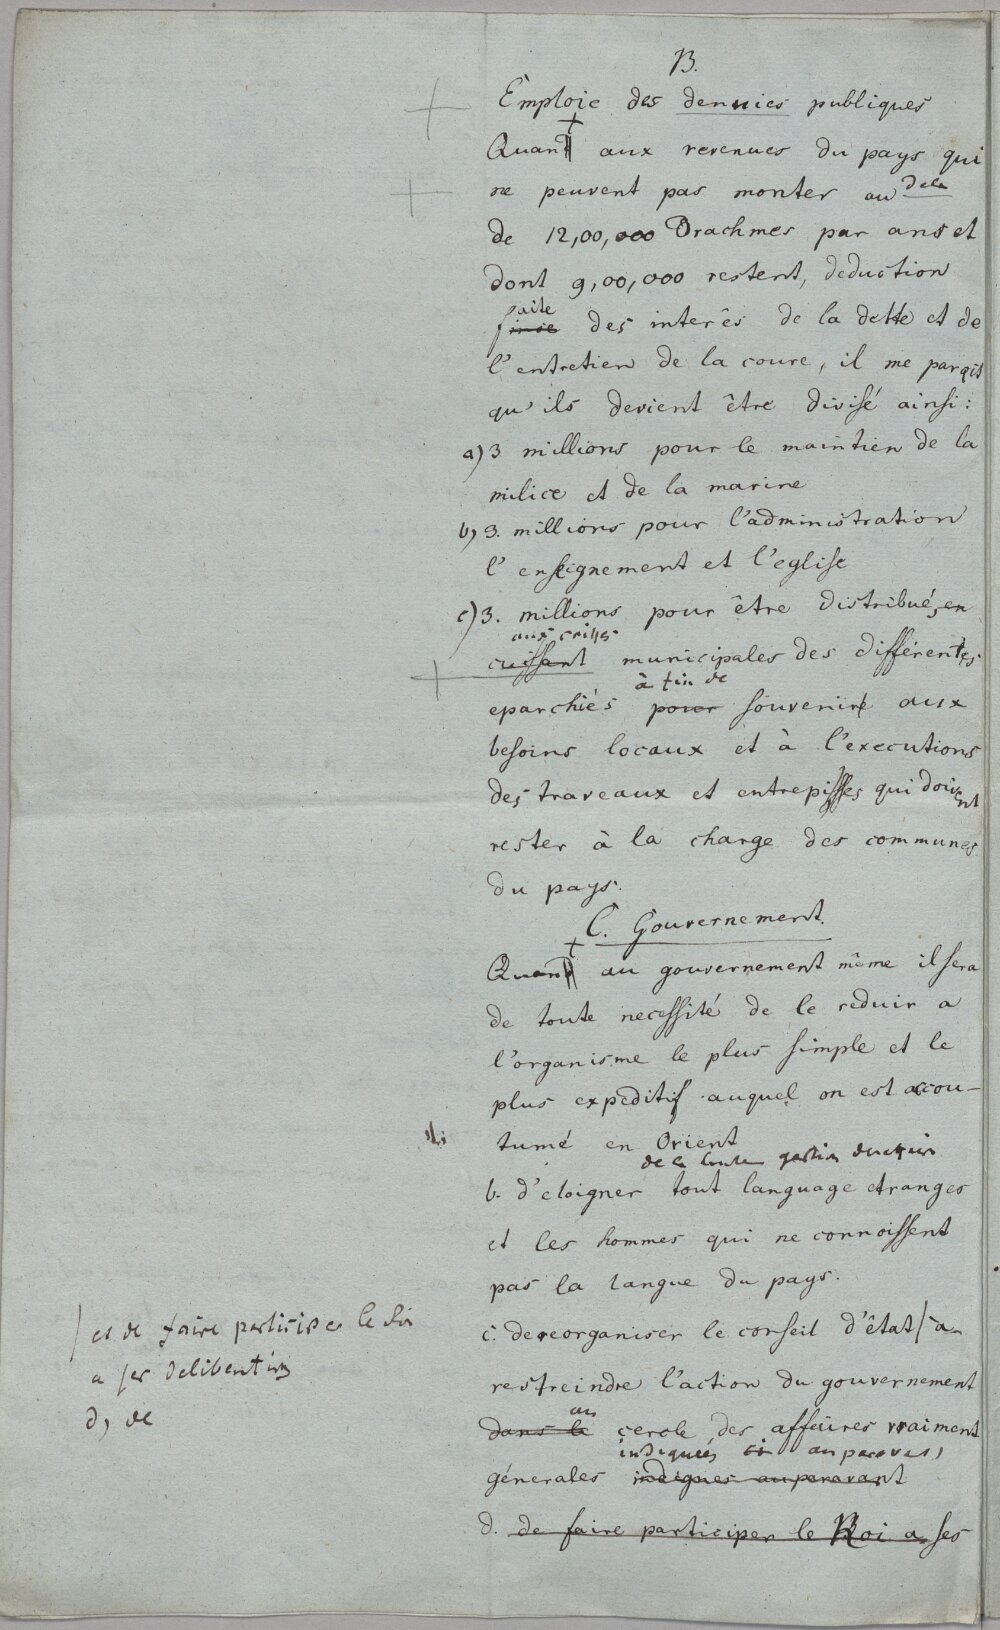 B.
Emploie des dennies publiques
Quant aux revenues du pays qui
ne peuvent pas monter au dela
de 12,00,000 Drachmes par ans et
dont 9,00,000 restent, deduction
faite des interês de la dette et de
l'entretien de la coure, il me parait
qu'ils devient être divisé ainsi:
a) 3 millions pour le maintien de la
milice et de la marine
b) 3. millions pour l'administration
l'enseignement et l'eglise
c) 3. millions pour être distribués, en
aux caisses
cuissant municipales des différentes
à fin de
eparchiés pour souvenire aux
besoins locaux et à l'executions
des traveaux et entrepisses qui doivent
rester à la charge des communes
du pays.
C. Gouvernement.
Quant au gouvernement même il sera
de toute necessité de le reduir a
l'organisme le plus simple et le
plus expeditif auquel on est accou-
tumé en Orient
de la gestion
b. d'eloigner tout language etranges
et les hommes qui ne connoissent
pas la langue du pays.
c. de reorganiser le conseil d'êtat / a
/ et de faire participer le Roi
a ses deliberations
d, de
restreindre l'action du gouvernement
au
dans le cercle des affaires vraiment
indiquées auparavant
génerales indiques auparavant
d. de faire participer le Roi a ses